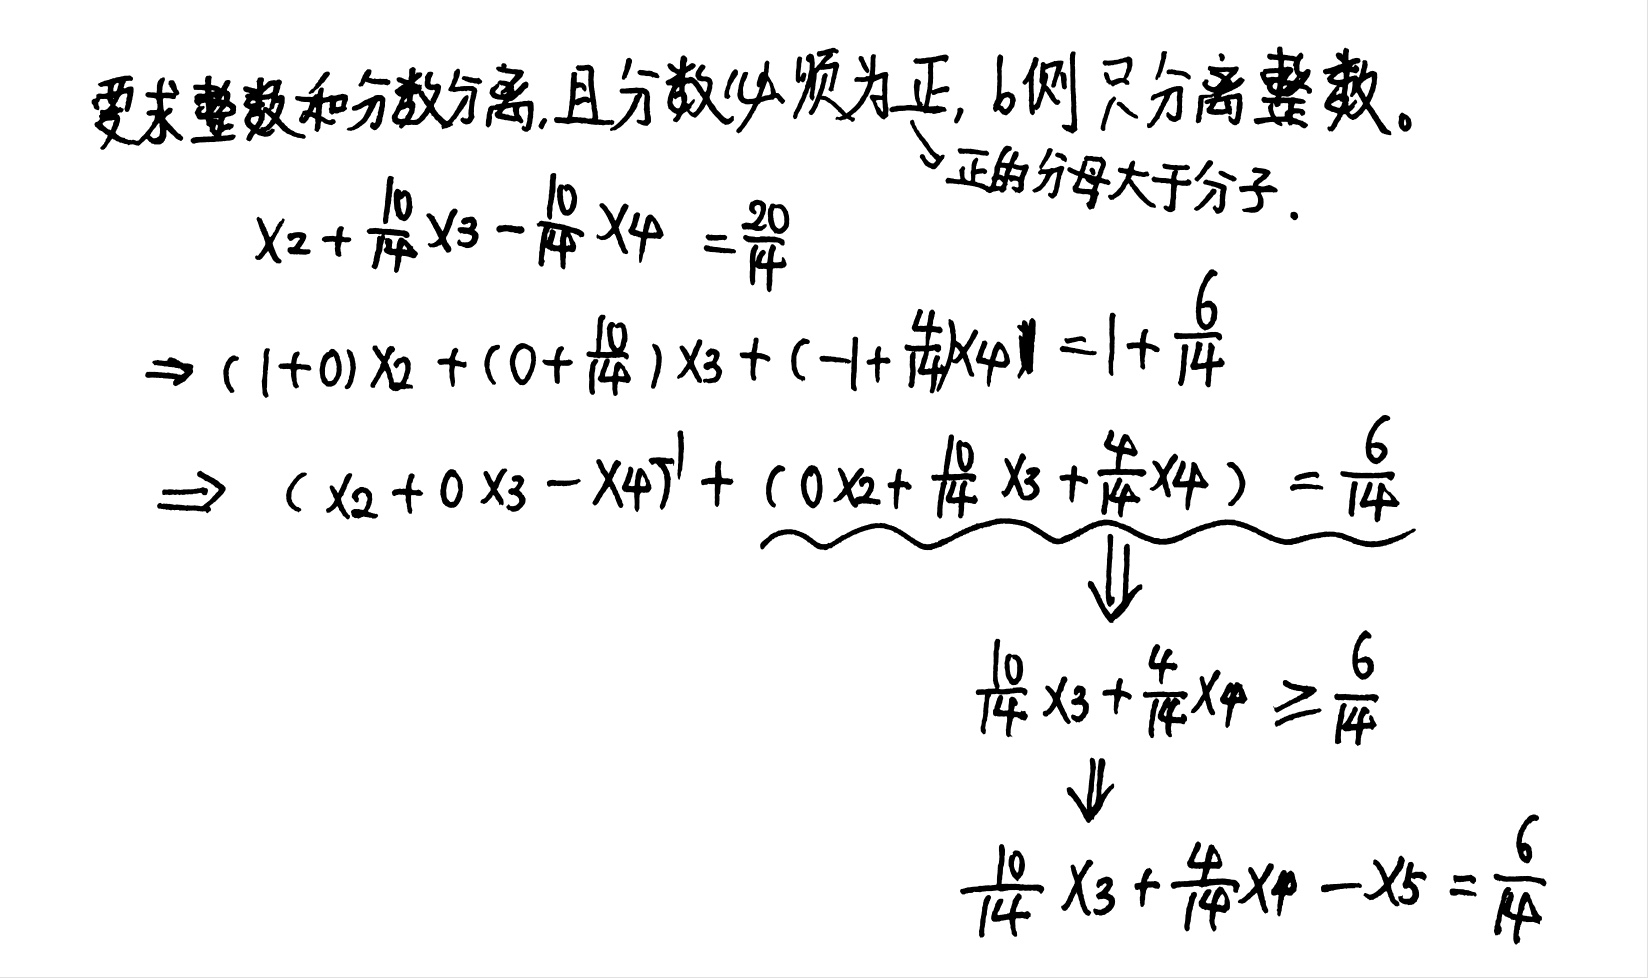 要求整数和分数分离,且分数必须为正, b侧只分离整数。
↘正的分母大于分子.
x2 + 10/14 x3 - 10/14 x4 = 20/14
⇒ (1+0) x2 + (0+10/14) x3 + (-1+4/14)x4 = 1 + 6/14
⇒ (x2 + 0 x3 - x4)-1 + (0 x2 + 10/14 x3 + 4/14 x4) = 6/14
⇓
10/14 x3 + 4/14 x4 ≥ 6/14
⇓
10/14 x3 + 4/14 x4 - x5 = 6/14